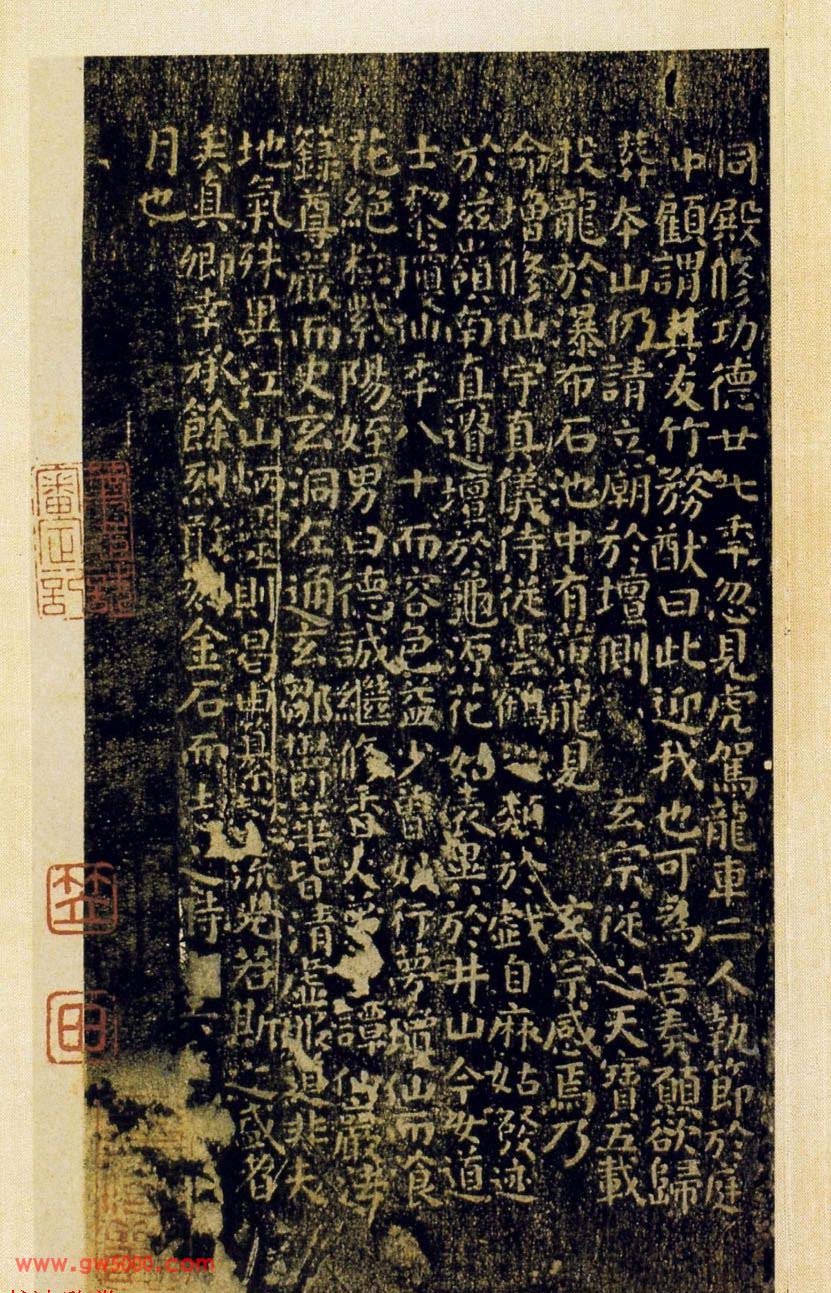 同殿修功德廿七年忽見虎駕龍車二人執節於庭
中顧謂其友竹務猷曰此迎我也可為吾奏願欲歸
葬本山仍請立廟於壇側 玄宗從之天寶五載
投龍於瀑布石池中有黃龍見 玄宗感焉乃
命增修仙宇真儀侍從雲鶴之類於戲自麻姑發迹
於茲嶺南真遺壇於龜源花姑表異於井山今女道
士黎瓊仙年八十而容色益少曾妙行夢瓊仙而食
花絕粒紫陽姪男曰德誠繼修香火譚仙巖法
籙尊嚴而史玄洞左通玄鄒鬱華皆清虛服道非夫
地氣殊異江山炳靈則曷由纂懿流光若斯之盛者
矣真卿幸承餘烈敢刻金石而志之時 六
月也
www.gw5000.com